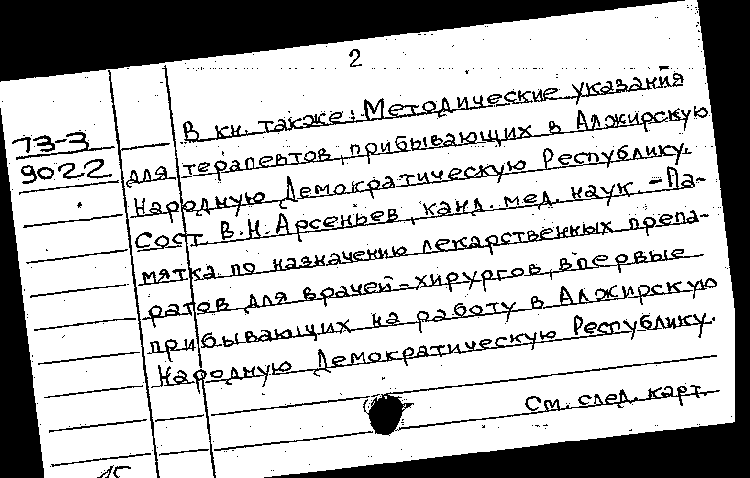 2
73-3
9022
В кн. также: Методические указания
для терапевтов, прибывающих в Алжирскую
Народную Демократическую Республику.
Сост. В.Н. Арсеньев, канд. мед. наук. - Па-
мятка по назначению лекарственных препа-
ратов для врачей-хирургов, впервые
прибывающих на работу в Алжирскую
Народную Демократическую Республику.
См. след. карт.
15